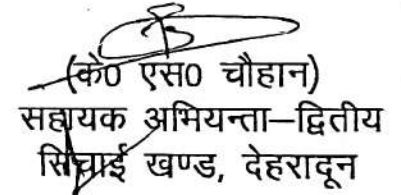 (के0 एस0 चौहान)
सहायक अभियन्ता–द्वितीय
सिंचाई खण्ड, देहरादून